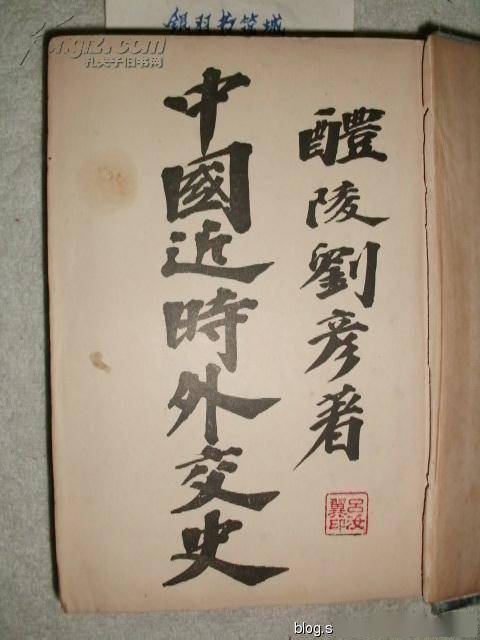 銀羽书筑城
kongfz.com
孔夫子旧书网
醴陵劉彥著
中國近時外交史
呂汝
翼印
blog.s